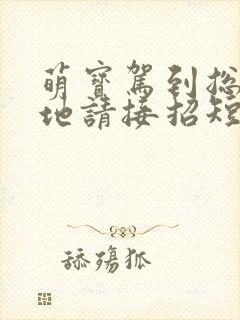 萌寶駕到总
地請接招短
舔殤狐